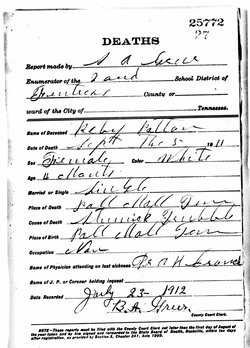 25772
27
DEATHS
Report made by S A
Enumerator of the 2 and School District of
Fentress County or
ward of the City of Tennessee.
Name of Deceased Baby
Date of Death Sept the 5 1911
Sex Female Color White
Age 4 Months
Married or Single Single
Place of Death Pall Mall Tenn
Cause of Death Stomick Trubble
Place of Birth Pall Mall Tenn
Occupation Non
Name of Physician attending on last sickness
Name of J. P. or Coroner holding inquest
Date Recorded July 23- 1912
County Court Clerk.
NOTE—These reports must be filed with the County Court Clerk not later than the first day of August of
the year taken and by him signed and forwarded to the State Board of Health, Nashville, within ten days
after registration, as provided by Section 2, Chapter 341, Acts 1909.